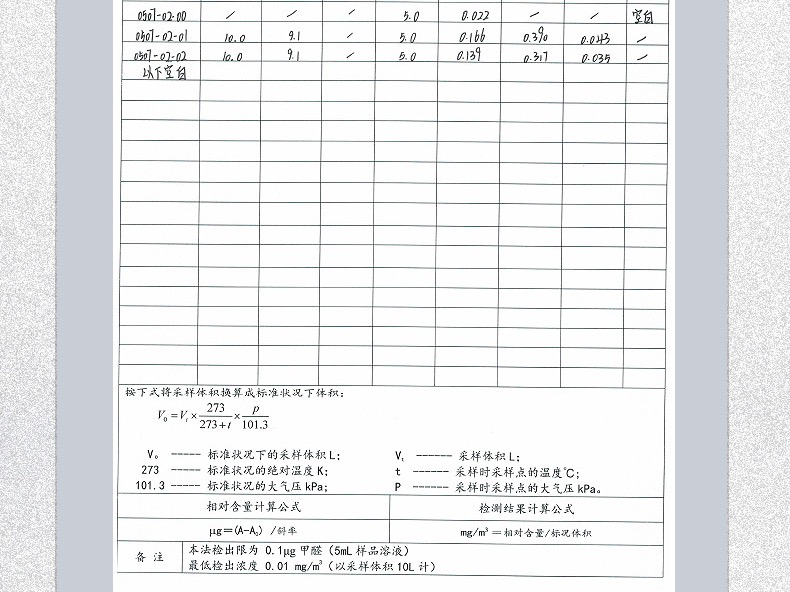 0507-02-00 / / / 5.0 0.022 / / 空白
0507-02-01 10.0 9.1 / 5.0 0.166 0.390 0.043 /
0507-02-02 10.0 9.1 / 5.0 0.139 0.317 0.035 /
以下空白
按下式将采样体积换算成标准状况下体积:
V₀=Vₜ×273/(273+t)×p/101.3
V₀ ----- 标准状况下的采样体积L; Vₜ ------ 采样体积L;
273 ----- 标准状况的绝对温度K; t ------ 采样时采样点的温度℃;
101.3 ----- 标准状况的大气压kPa; P ------ 采样时采样点的大气压kPa。
相对含量计算公式 检测结果计算公式
μg=(A-A₀) /斜率 mg/m³=相对含量/标况体积
备 注 本法检出限为 0.1μg甲醛(5mL样品溶液)
最低检出浓度 0.01 mg/m³(以采样体积10L计)